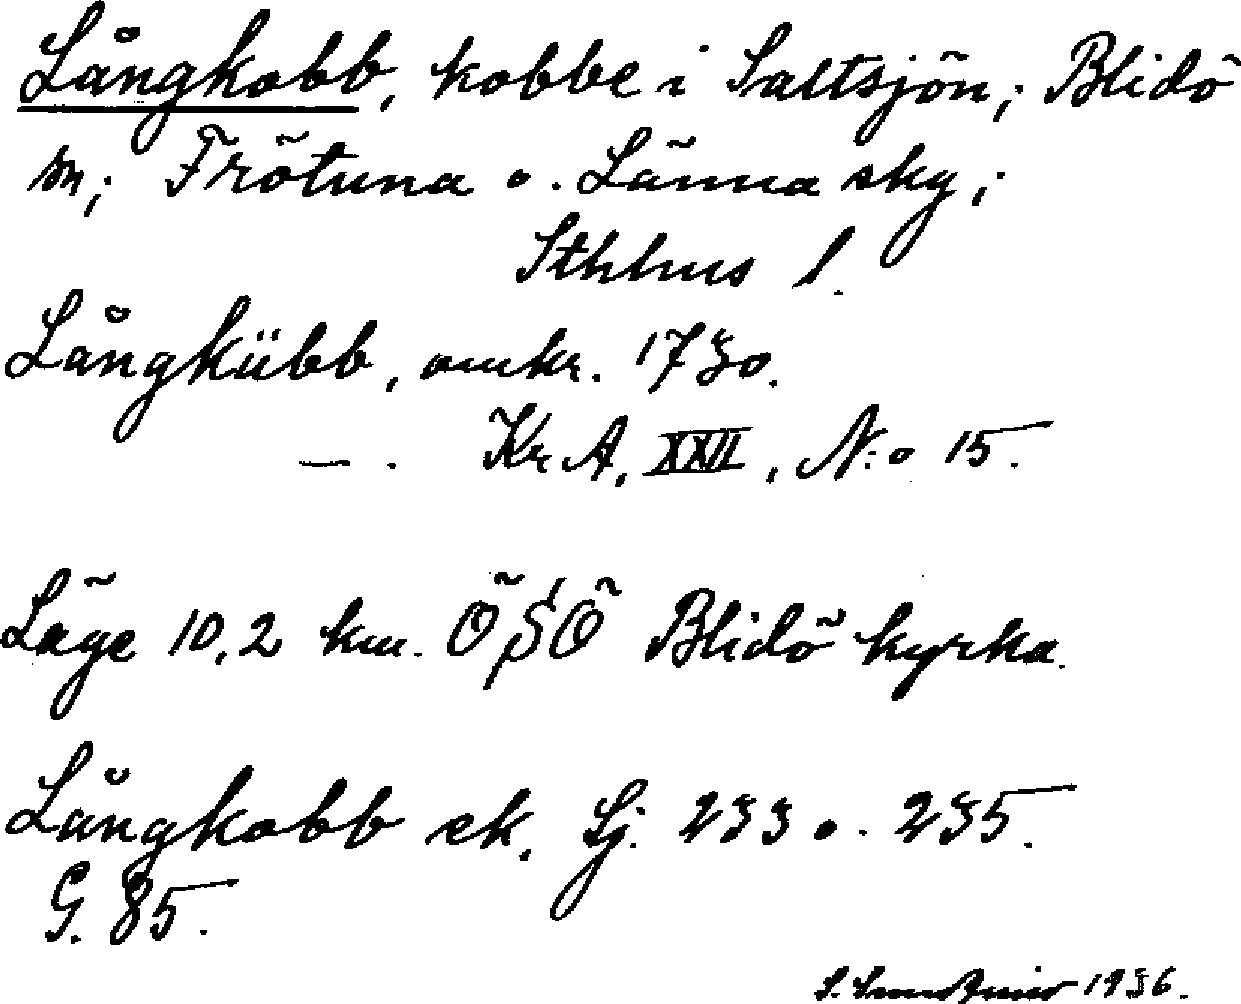 Långkobb, kobbe i Saltsjön; Blidö
sn; Frötuna o. Länna skg;
Sthlms l.
Långkübb, omkr. 1730.
—. Kr A, XXII, N:o 15.
Läge 10,2 km. ÖSÖ Blidö kyrka.
Långkobb ek, Sj. 233 o. 235.
G. 85.
S. 1936.